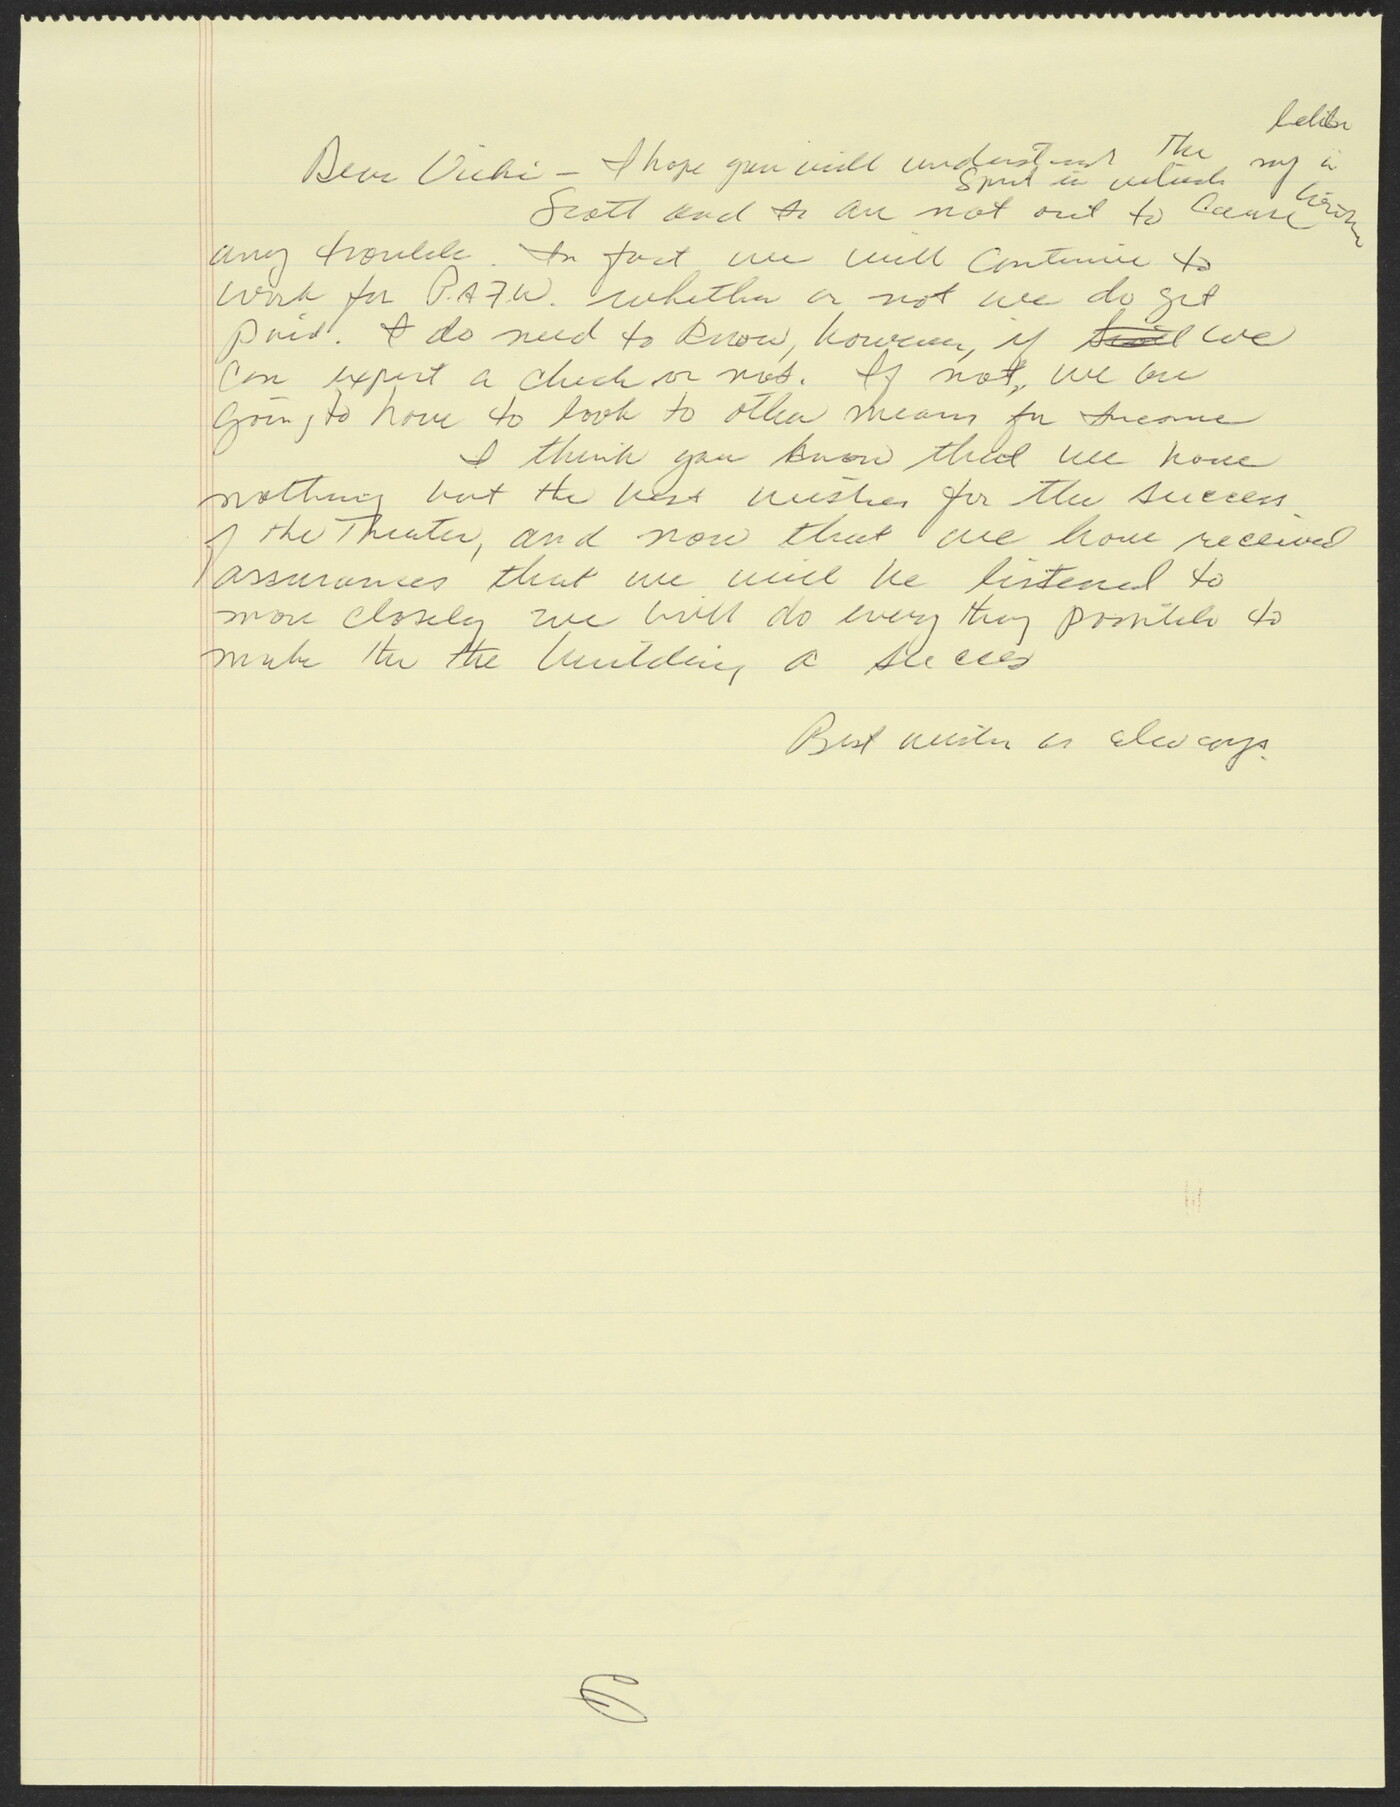 Dear Vicki – I hope you will understand the
spirit in which my letter is written
Scott and I are not out to cause
any trouble. In fact we will continue to
work for P.A.F.W. whether or not we do get
paid. I do need to know, however, if we
can expect a check or not. If not, we are
going to have to look to other means for income
I think you know that we have
nothing but the best wishes for the success
of the Theater, and now that we have received
assurances that we will be listened to
more closely we will do every thing possible to
make the the building a succes
Best wishes as always.